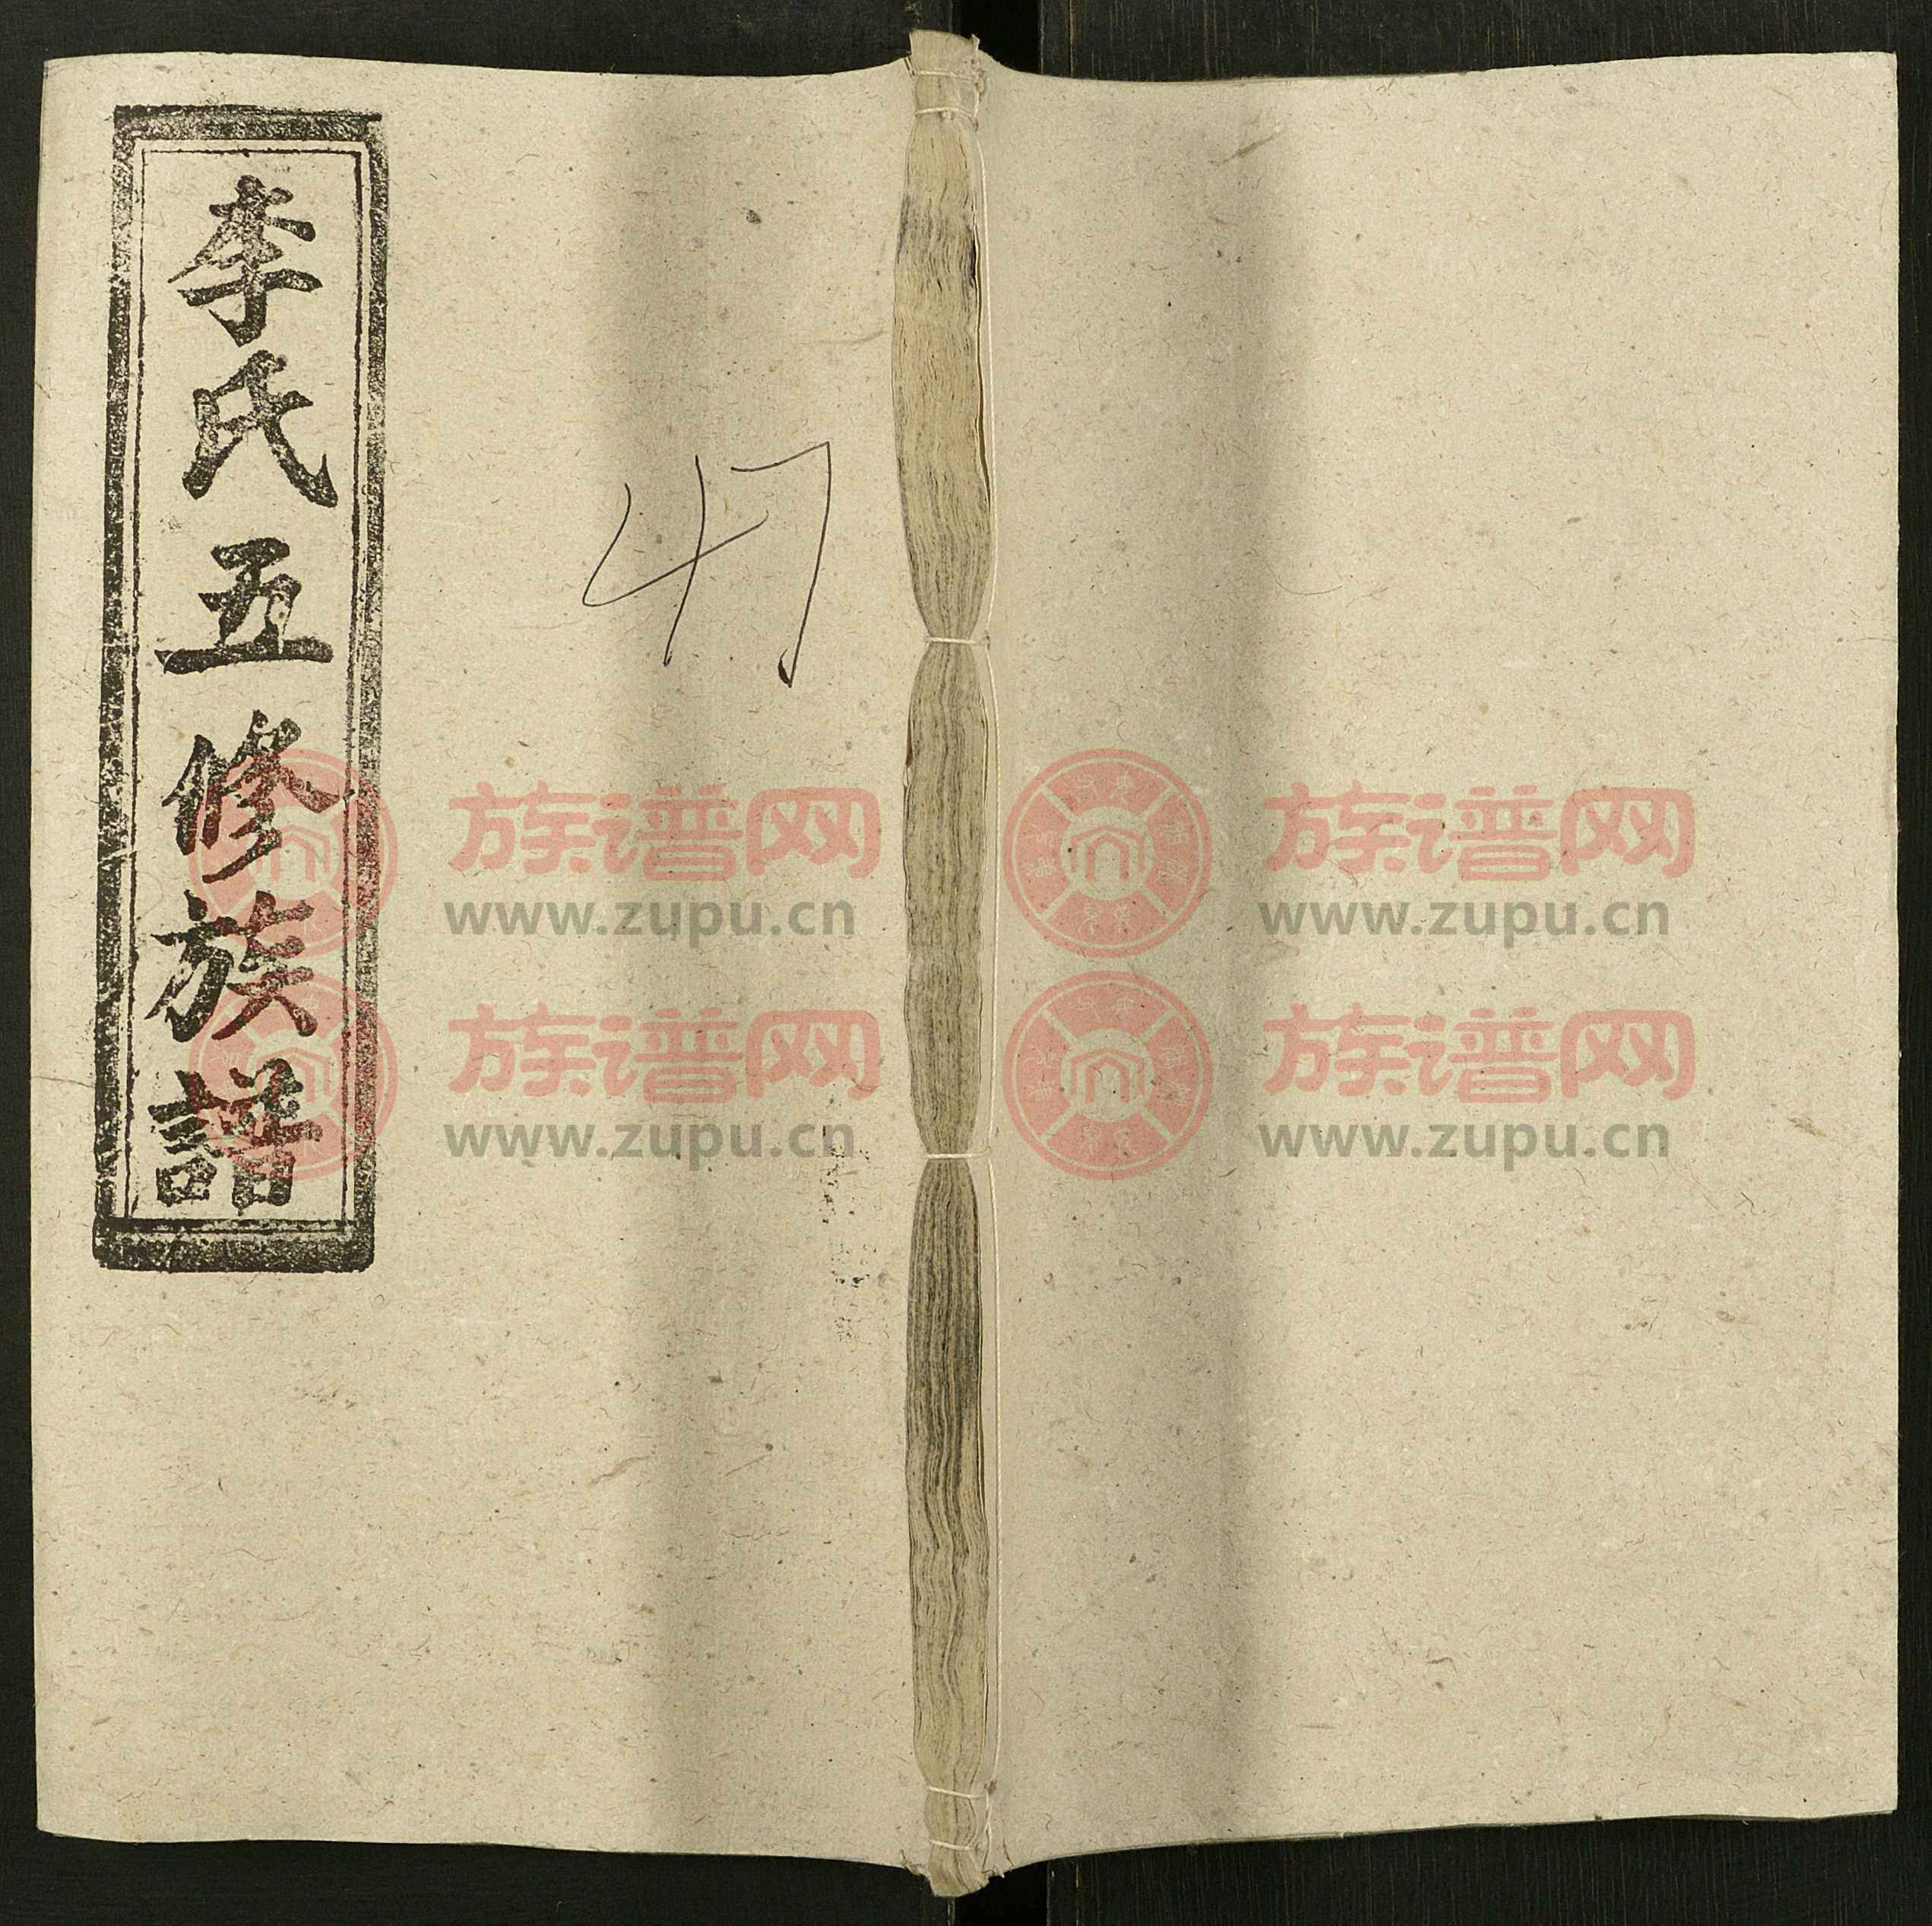 李氏五修族譜
47
族谱网 族谱网
www.zupu.cn www.zupu.cn
族谱网 族谱网
www.zupu.cn www.zupu.cn